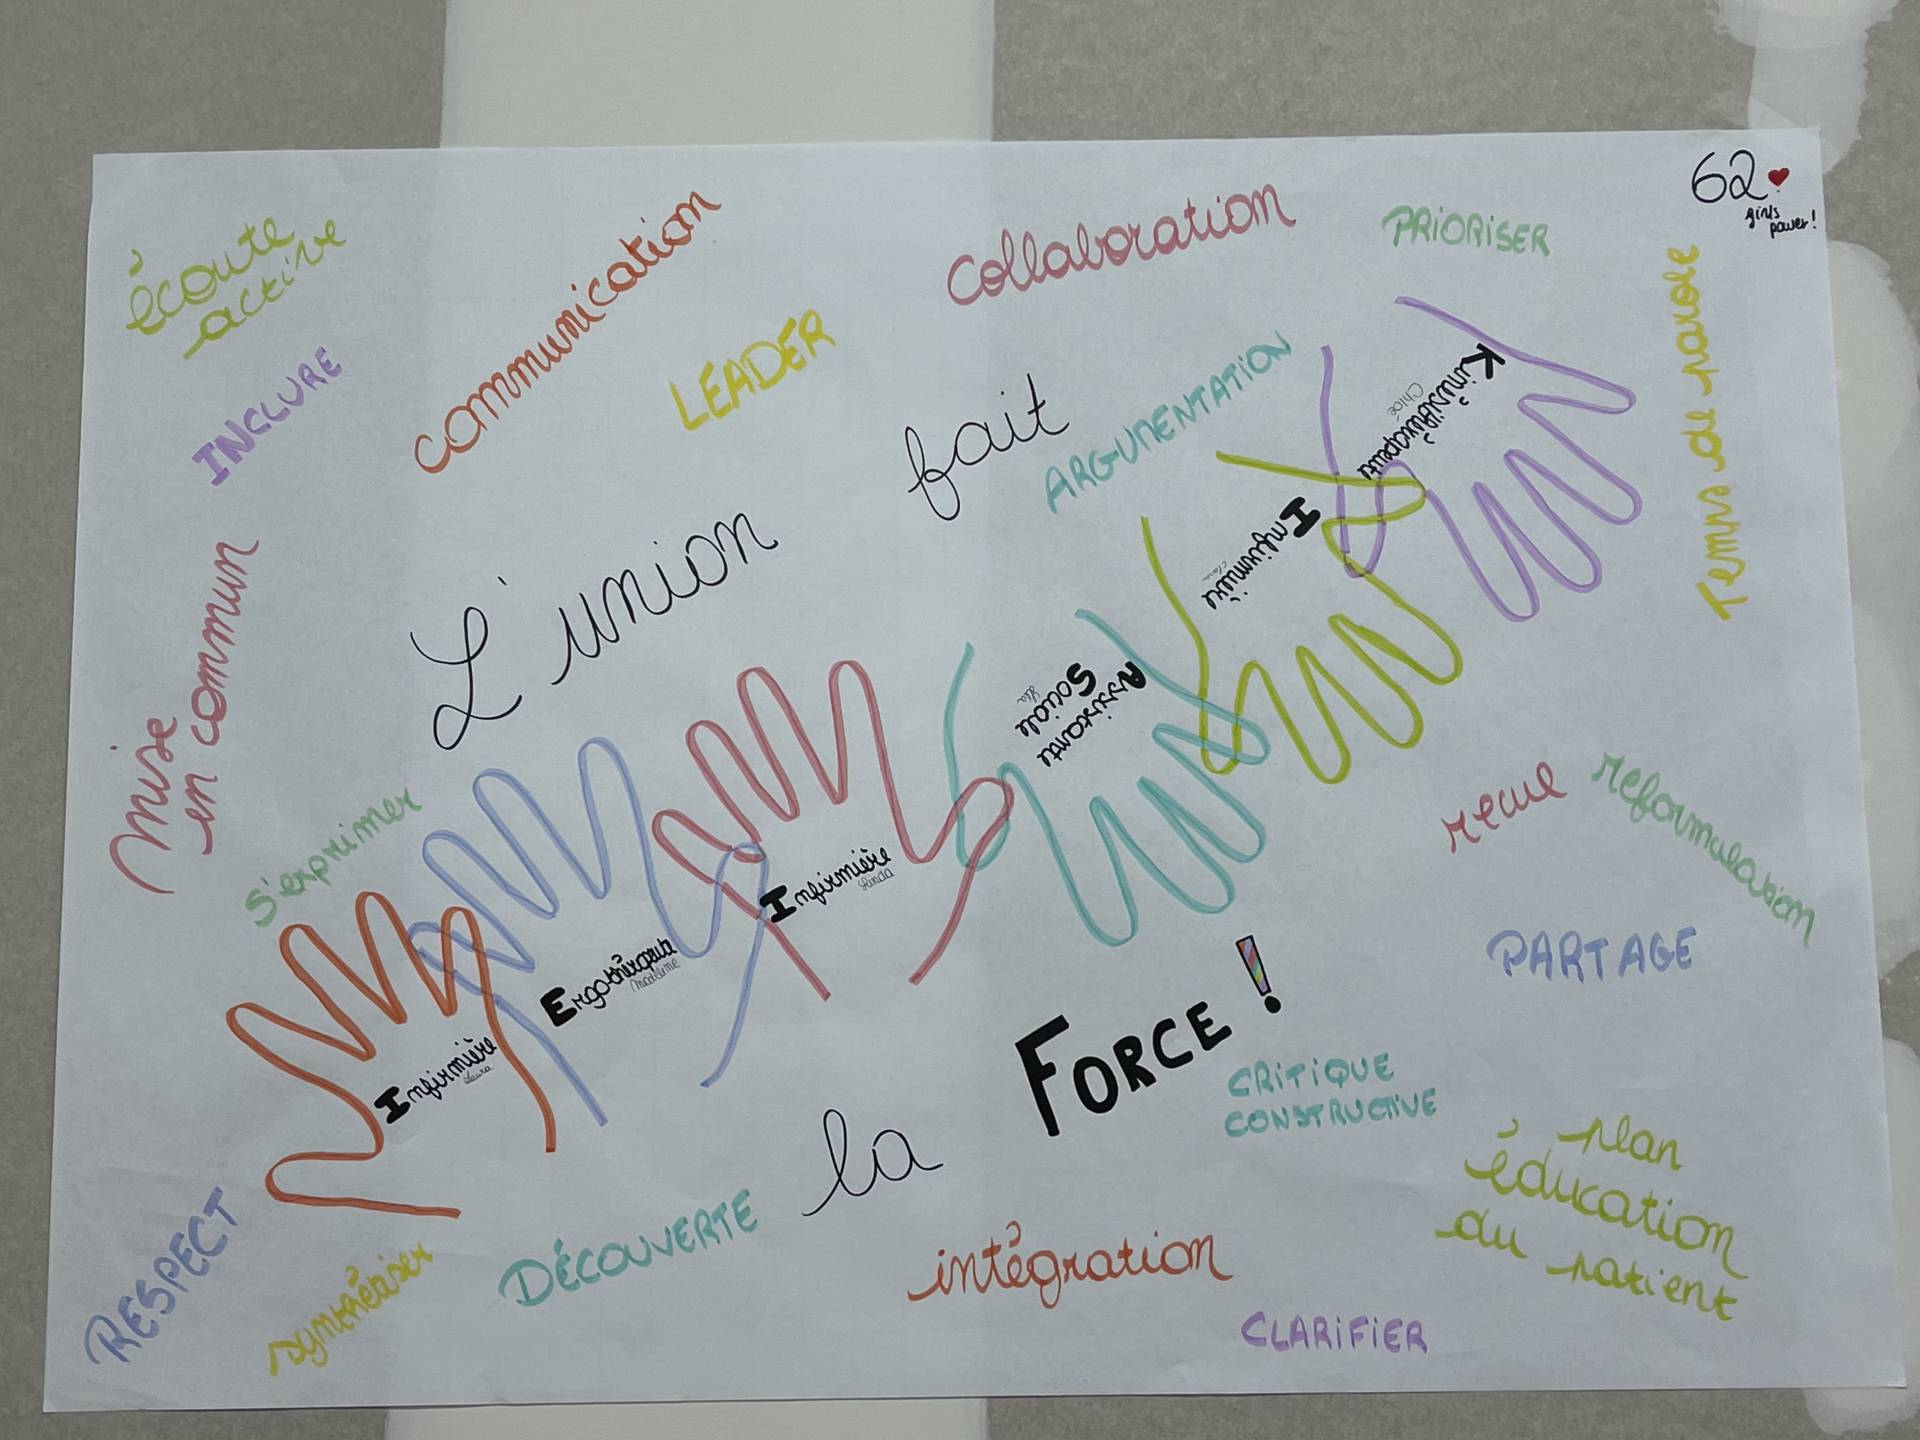 62
girls
power!
écoute
active
communication
collaboration
PRIORISER
Temps de parole
INCLURE
LEADER
ARGUMENTATION
L'union
fait
la
FORCE !
Kinésithérapeute
Chloé
Infirmière
Assistante
Sociale
Infirmière
Ergothérapeute
Madeleine
Infirmière
Laura
Mise
en commun
s'exprimer
recul
reformulation
PARTAGE
CRITIQUE
CONSTRUCTIVE
plan
éducation
du patient
RESPECT
synthétiser
DÉCOUVERTE
intégration
CLARIFIER